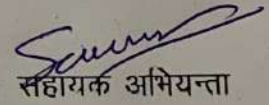 सहायक अभियन्ता